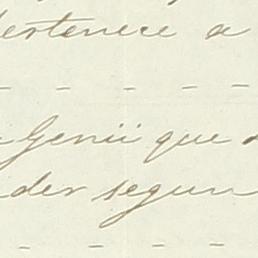 pertenece a
- - - - -
Genii que
der segun
- - - -